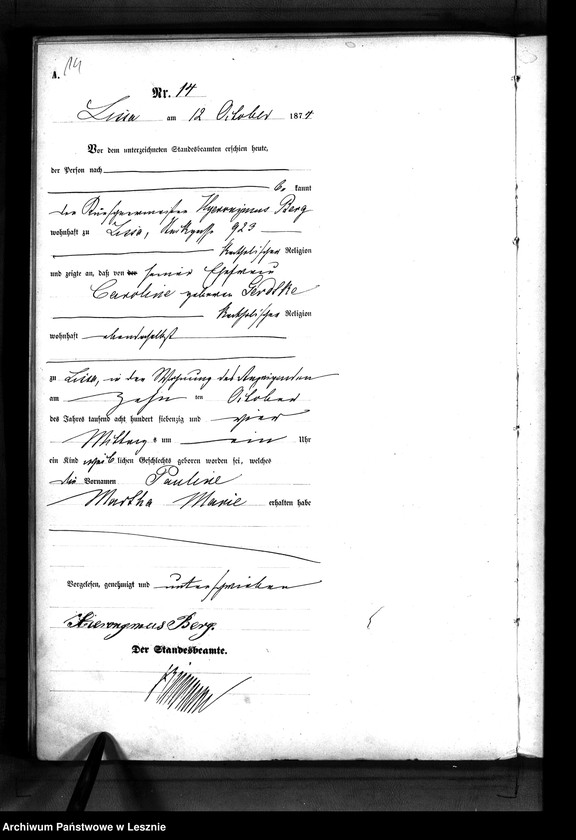 A. 14
Nr. 14
Lissa am 12 October 1874
Vor dem unterzeichneten Standesbeamten erschien heute,
der Person nach
be kannt
der Hyeronymus Berg
wohnhaft zu Lissa, 923
katholischer Religion
und zeigte an, daß von der seiner Ehefrau
Caroline geborene Gerdtke
katholischer Religion
wohnhaft ebendaselbst
zu Lissa, in der Wohnung des Anzeigenden
am zehn ten October
des Jahres tausend acht hundert siebenzig und vier
Mittags um ein Uhr
ein Kind weib lichen Geschlechts geboren worden sei, welches
die Vornamen Pauline
Martha Marie erhalten habe
Vorgelesen, genehmigt und unterschrieben
Hieronymus Berg.
Der Standesbeamte.
Archiwum Państwowe w Lesznie